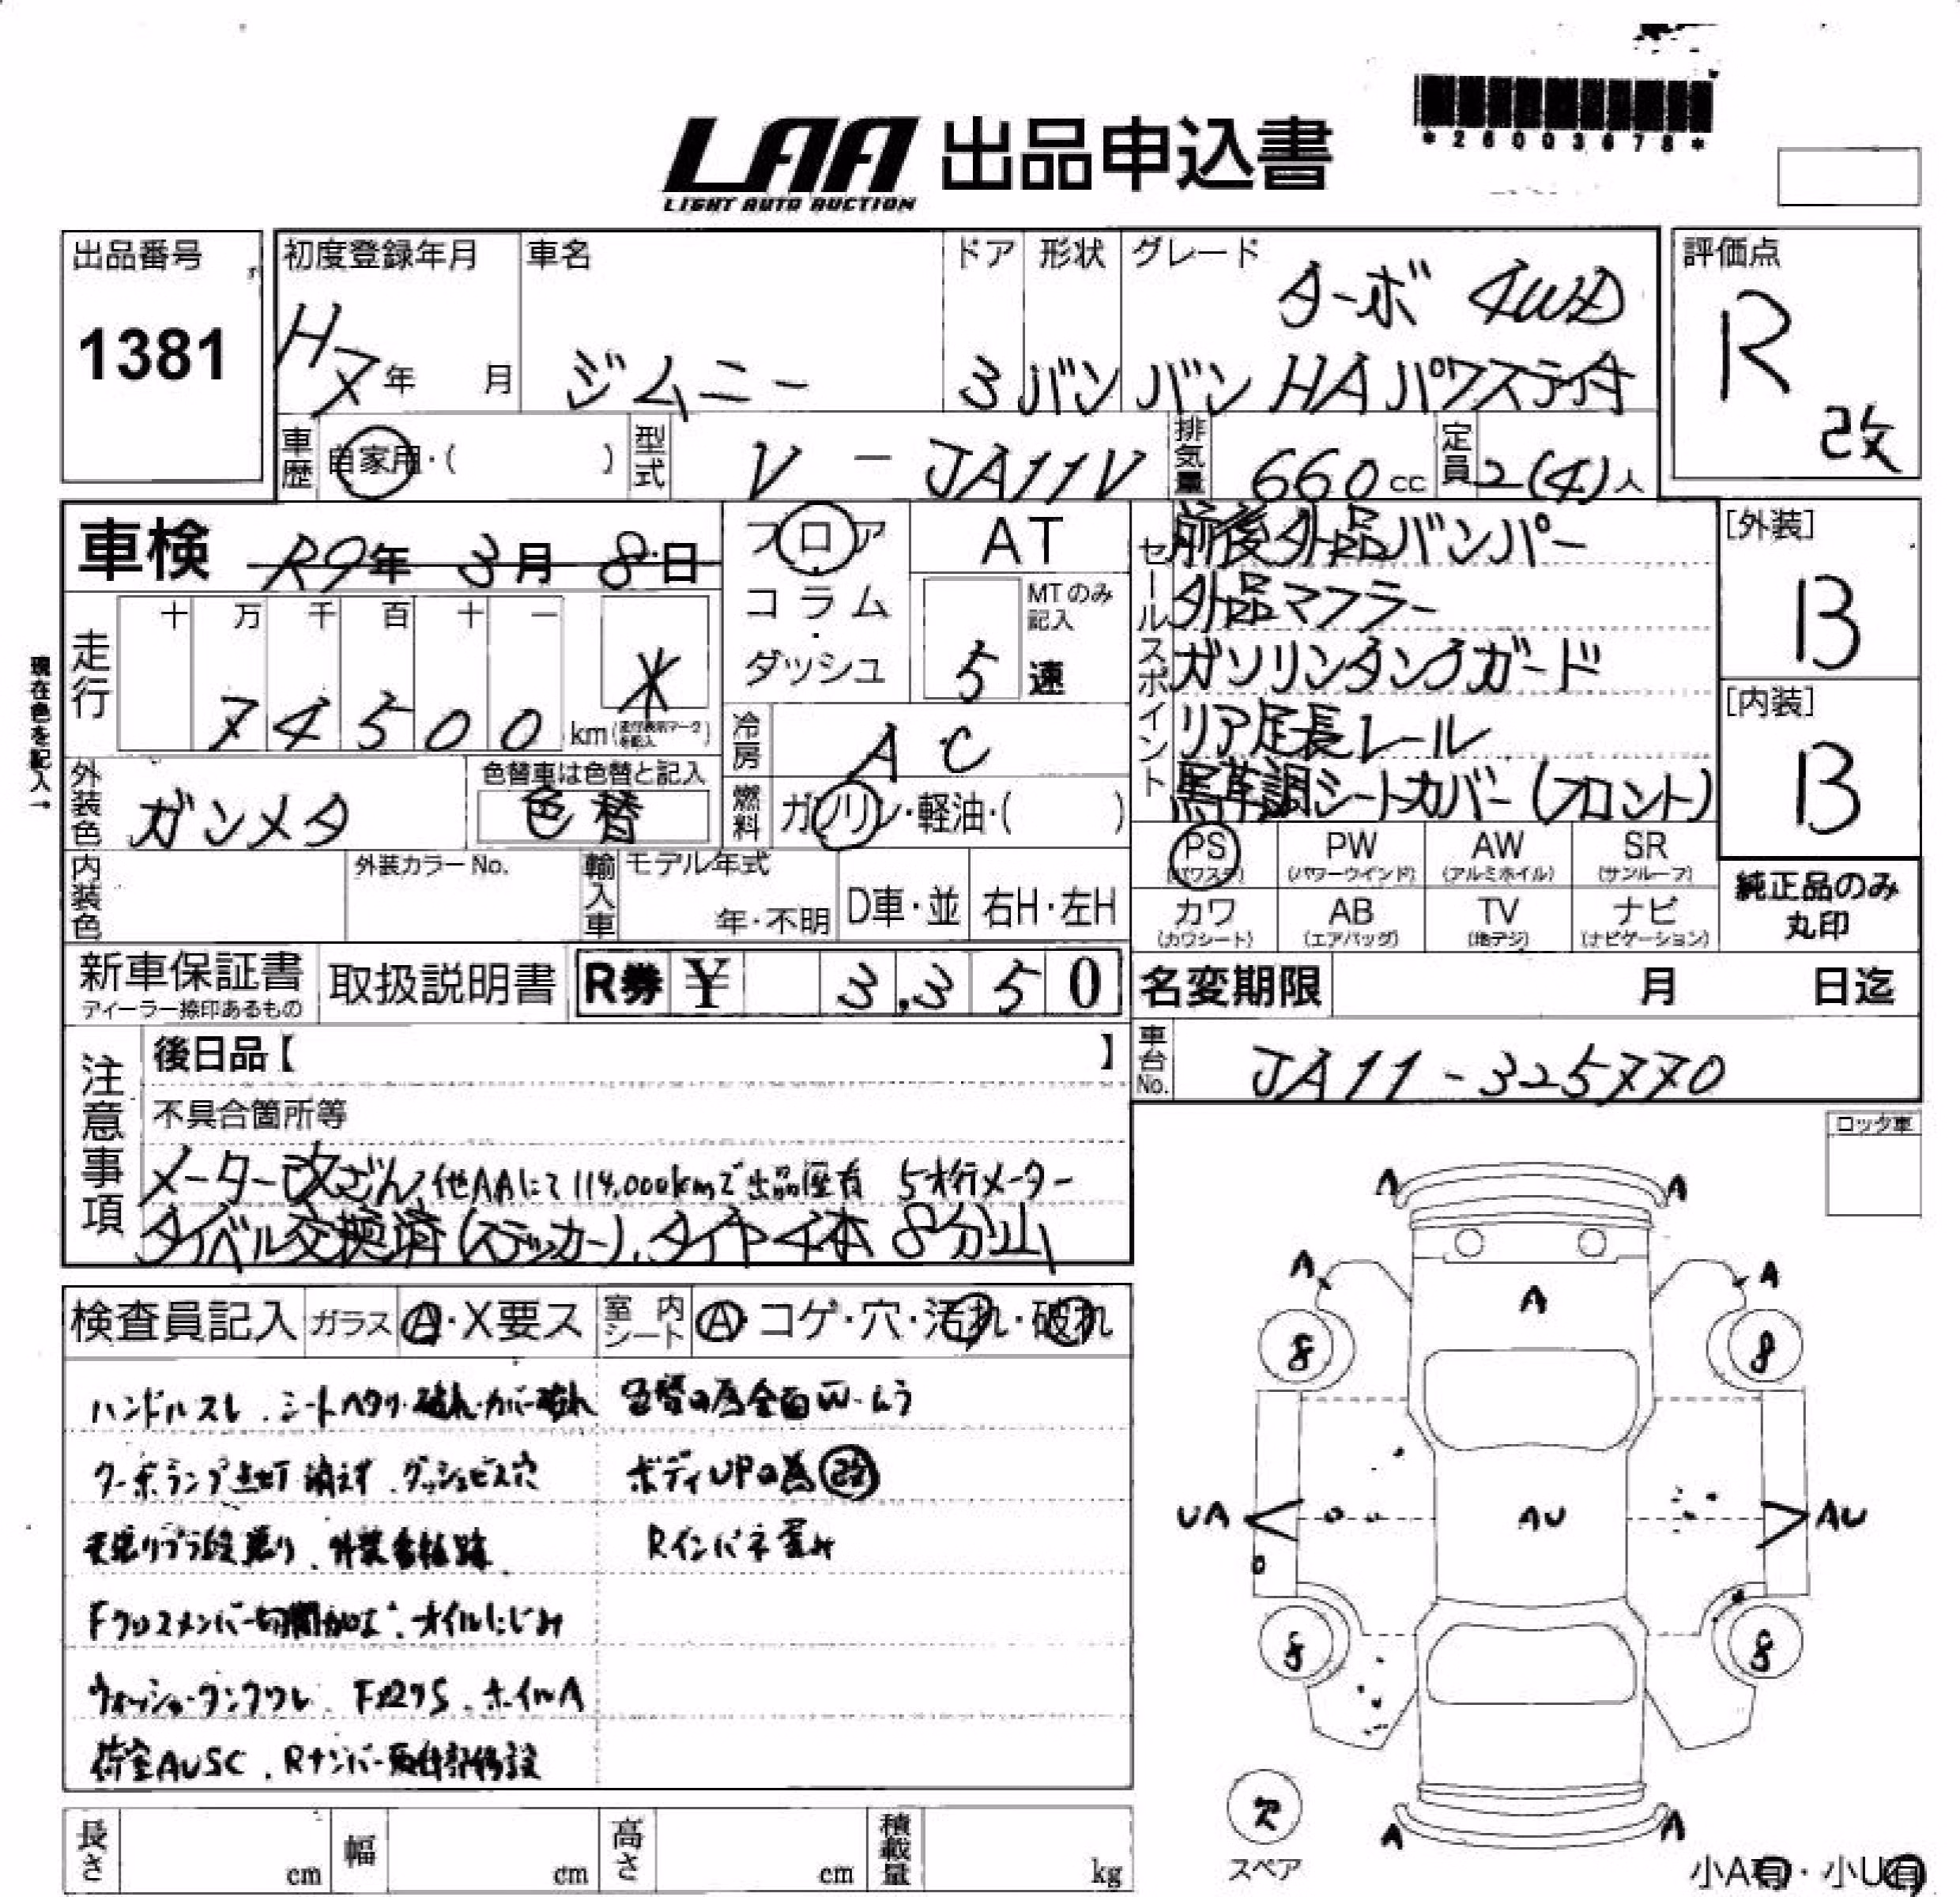 *26003678*
LAA 出品申込書
LIGHT AUTO AUCTION
出品番号
1381
初度登録年月
H7年 月
車名
ジムニー
ドア
3
形状
バン
グレード
ターボ 4WD
バン HA パワステ付
評価点
R
改
車歴
自家用・( )
型式
V - JA11V
排気量
660cc
定員
2(4)人
車検
R9年 3月 8日
フロア
・
コラム
・
ダッシュ
AT
MTのみ記入
5速
セールスポイント
前後外品バンパー
外品マフラー
ガソリンタンクガード
リア延長レール
馬革調シートカバー(フロント)
[外装]
B
[内装]
B
現在色を記入→
走行
十 万 千 百 十 一
74500 km
*
冷房
AC
外装色
ガンメタ
色替車は色替と記入
色替
燃料
ガソリン・軽油・( )
内装色
外装カラーNo.
輸入車
モデル年式
年・不明
D車・並
右H・左H
PS
(パワステ)
PW
(パワーウインド)
AW
(アルミホイル)
SR
(サンルーフ)
カワ
(カワシート)
AB
(エアバッグ)
TV
(地デジ)
ナビ
(ナビゲーション)
純正品のみ
丸印
新車保証書
ディーラー捺印あるもの
取扱説明書
R券 ¥ 3,350
名変期限 月 日迄
車台No.
JA11-325770
注意事項
後日品【 】
不具合箇所等
メーター改ざん、他AAにて114,000kmで出品歴有 5桁メーター
タイベル交換済(ステッカー)、タイヤ4本8分山
ロック車
検査員記入
ガラス
A・X要ス
室内シート
A・コゲ・穴・汚れ・破れ
ハンドルスレ、シートヘタリ・破れ・カバー破れ
色替の為全面W・ムラ
ターボランプ点灯消えず、ダッシュビス穴
ボディUPの為改
天張りプラ段張り、外装
Rインパネ歪み
Fクロスメンバー切開加工、オイルにじみ
ウォッシャータンクワレ、 ホイルA
荷室AUSC、Rナンバー取付部移設
A A
A A
A
8 8
UA AU AU
8 8
欠
スペア
A A
小A有・小U有
長さ cm
幅 cm
高さ cm
積載量 kg